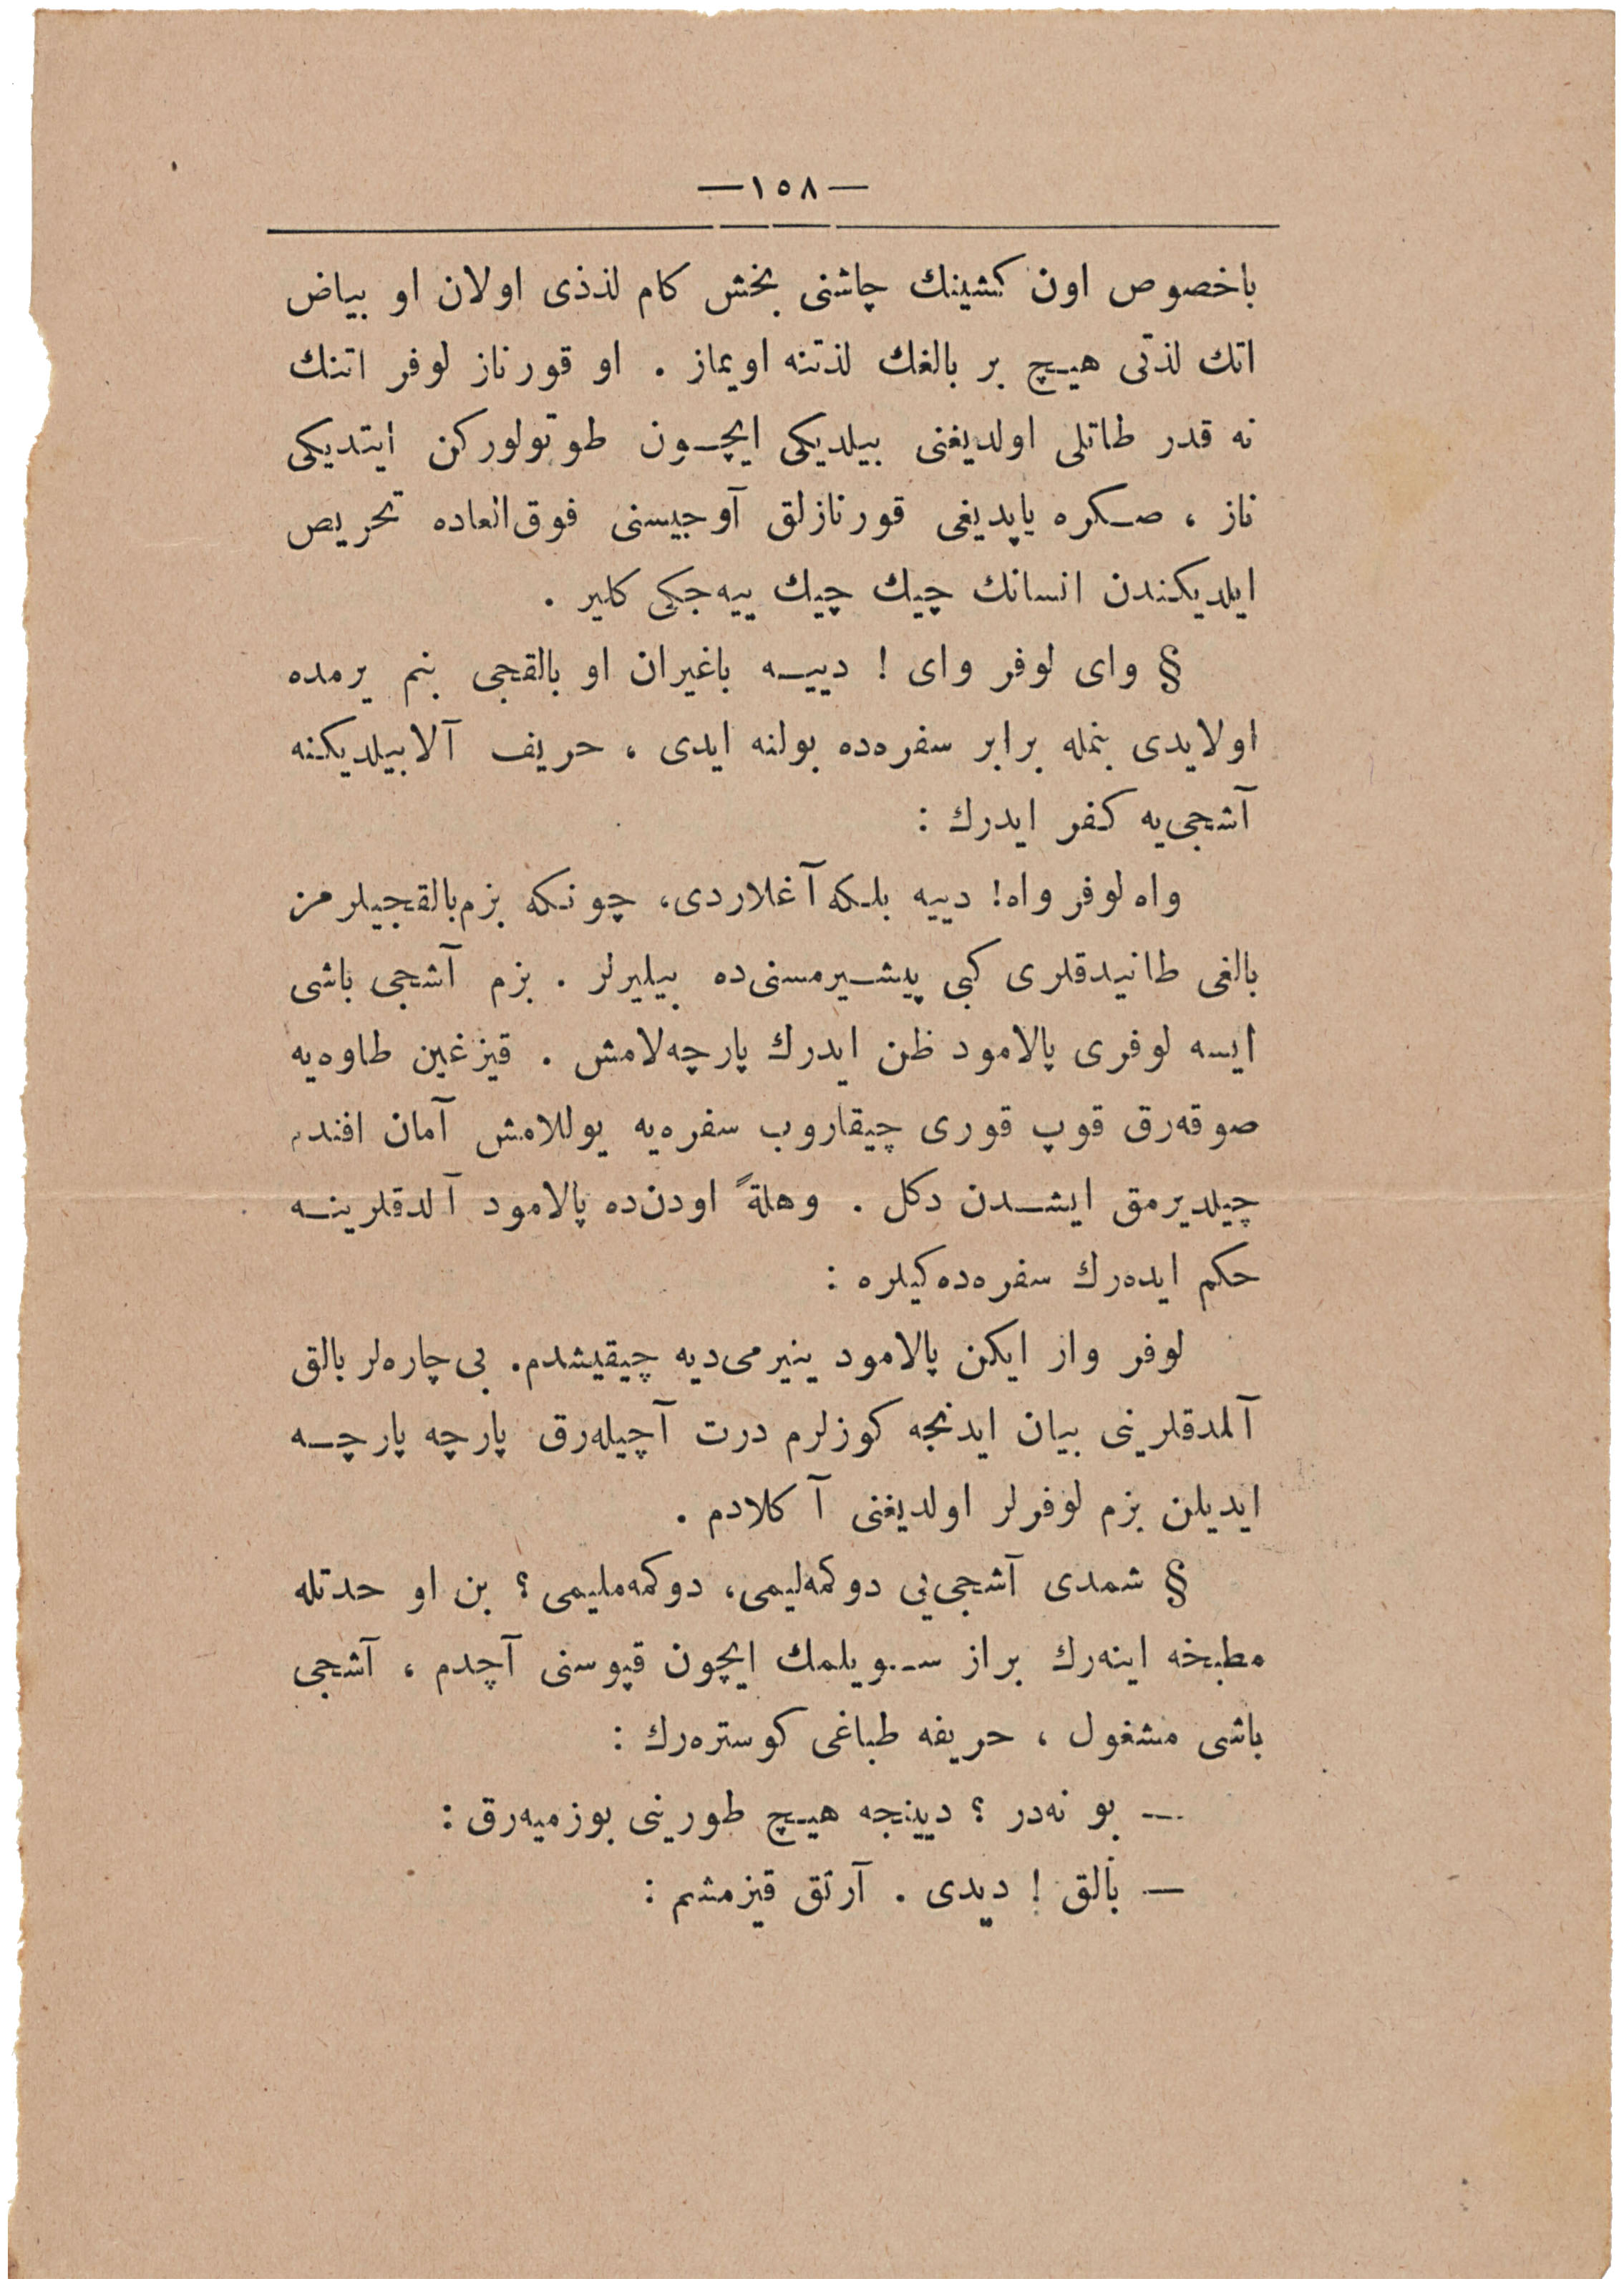 —١٥٨—
باخصوص اون كشينك چاشنى بخش كام لذذى اولان او بياض
اتك لذتى هيچ بر بالغك لذتنه اويماز . او قورناز لوفر اتنك
نه قدر طاتلى اولديغنى بيلديكى ايچون طوتولوركن ايتديكى
ناز ، صكره ياپديغى قورنازلق آوجيسنى فوق‌العاده تحريص
ايلديكندن انسانك چيك چيك ييه‌جكى كلير .
§ واى لوفر واى ! دييه باغيران او بالقجى بنم يرمده
اولايدى بنمله برابر سفره‌ده بولنه ايدى ، حريف آلابيلديكنه
آشجى‌يه كفر ايدرك :
واه لوفر واه! دييه بلكه آغلاردى، چونكه بزم بالقجيلرمز
بالغى طانيدقلرى كبى پيشيرمسنى‌ده بيليرلر . بزم آشجى باشى
ايسه لوفرى پالامود ظن ايدرك پارچه‌لامش . قيزغين طاوه‌يه
صوقه‌رق قوپ قورى چيقاروب سفره‌يه يوللامش آمان افندم
چيلديرمق ايشدن دكل . وهلةً اودن‌ده پالامود آلدقلرينه
حكم ايده‌رك سفره‌ده‌كيلره :
لوفر وار ايكن پالامود ينيرمى‌ديه چيقيشدم. بى‌چاره‌لر بالق
آلمدقلرينى بيان ايدنجه كوزلرم درت آچيله‌رق پارچه پارچه
ايديلن بزم لوفرلر اولديغنى آكلادم .
§ شمدى آشجى‌يى دوكمه‌ليمى، دوكمه‌مليمى؟ بن او حدتله
مطبخه اينه‌رك براز سويلمك ايچون قپوسنى آچدم ، آشجى
باشى مشغول ، حريفه طباغى كوستره‌رك :
— بو نه‌در ؟ ديينجه هيچ طورينى بوزميه‌رق :
— بالق ! ديدى . آرتق قيزمشم :